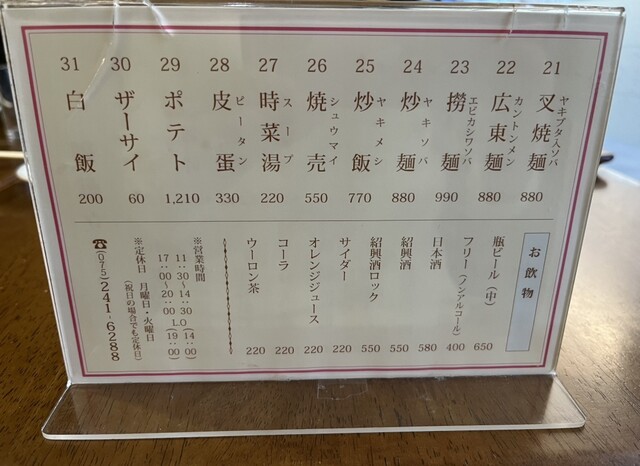 21 叉焼麺 ヤキブタ入ソバ 880
22 広東麺 カントンメン 880
23 撈麺 エビカシワソバ 990
24 炒麺 ヤキソバ 880
25 炒飯 ヤキメシ 770
26 焼売 シュウマイ 550
27 時菜湯 スープ 220
28 皮蛋 ピータン 330
29 ポテト 1,210
30 ザーサイ 60
31 白飯 200
お飲物
瓶ビール(中) 650
フリー(ノンアルコール) 400
日本酒 580
紹興酒 550
紹興酒ロック 550
サイダー 220
オレンジジュース 220
コーラ 220
ウーロン茶 220
※営業時間
11:30~14:30 L.O(14:00)
17:00~20:00 (19:00)
※定休日 月曜日・火曜日
(祝日の場合でも定休日)
☎(075)241-6288